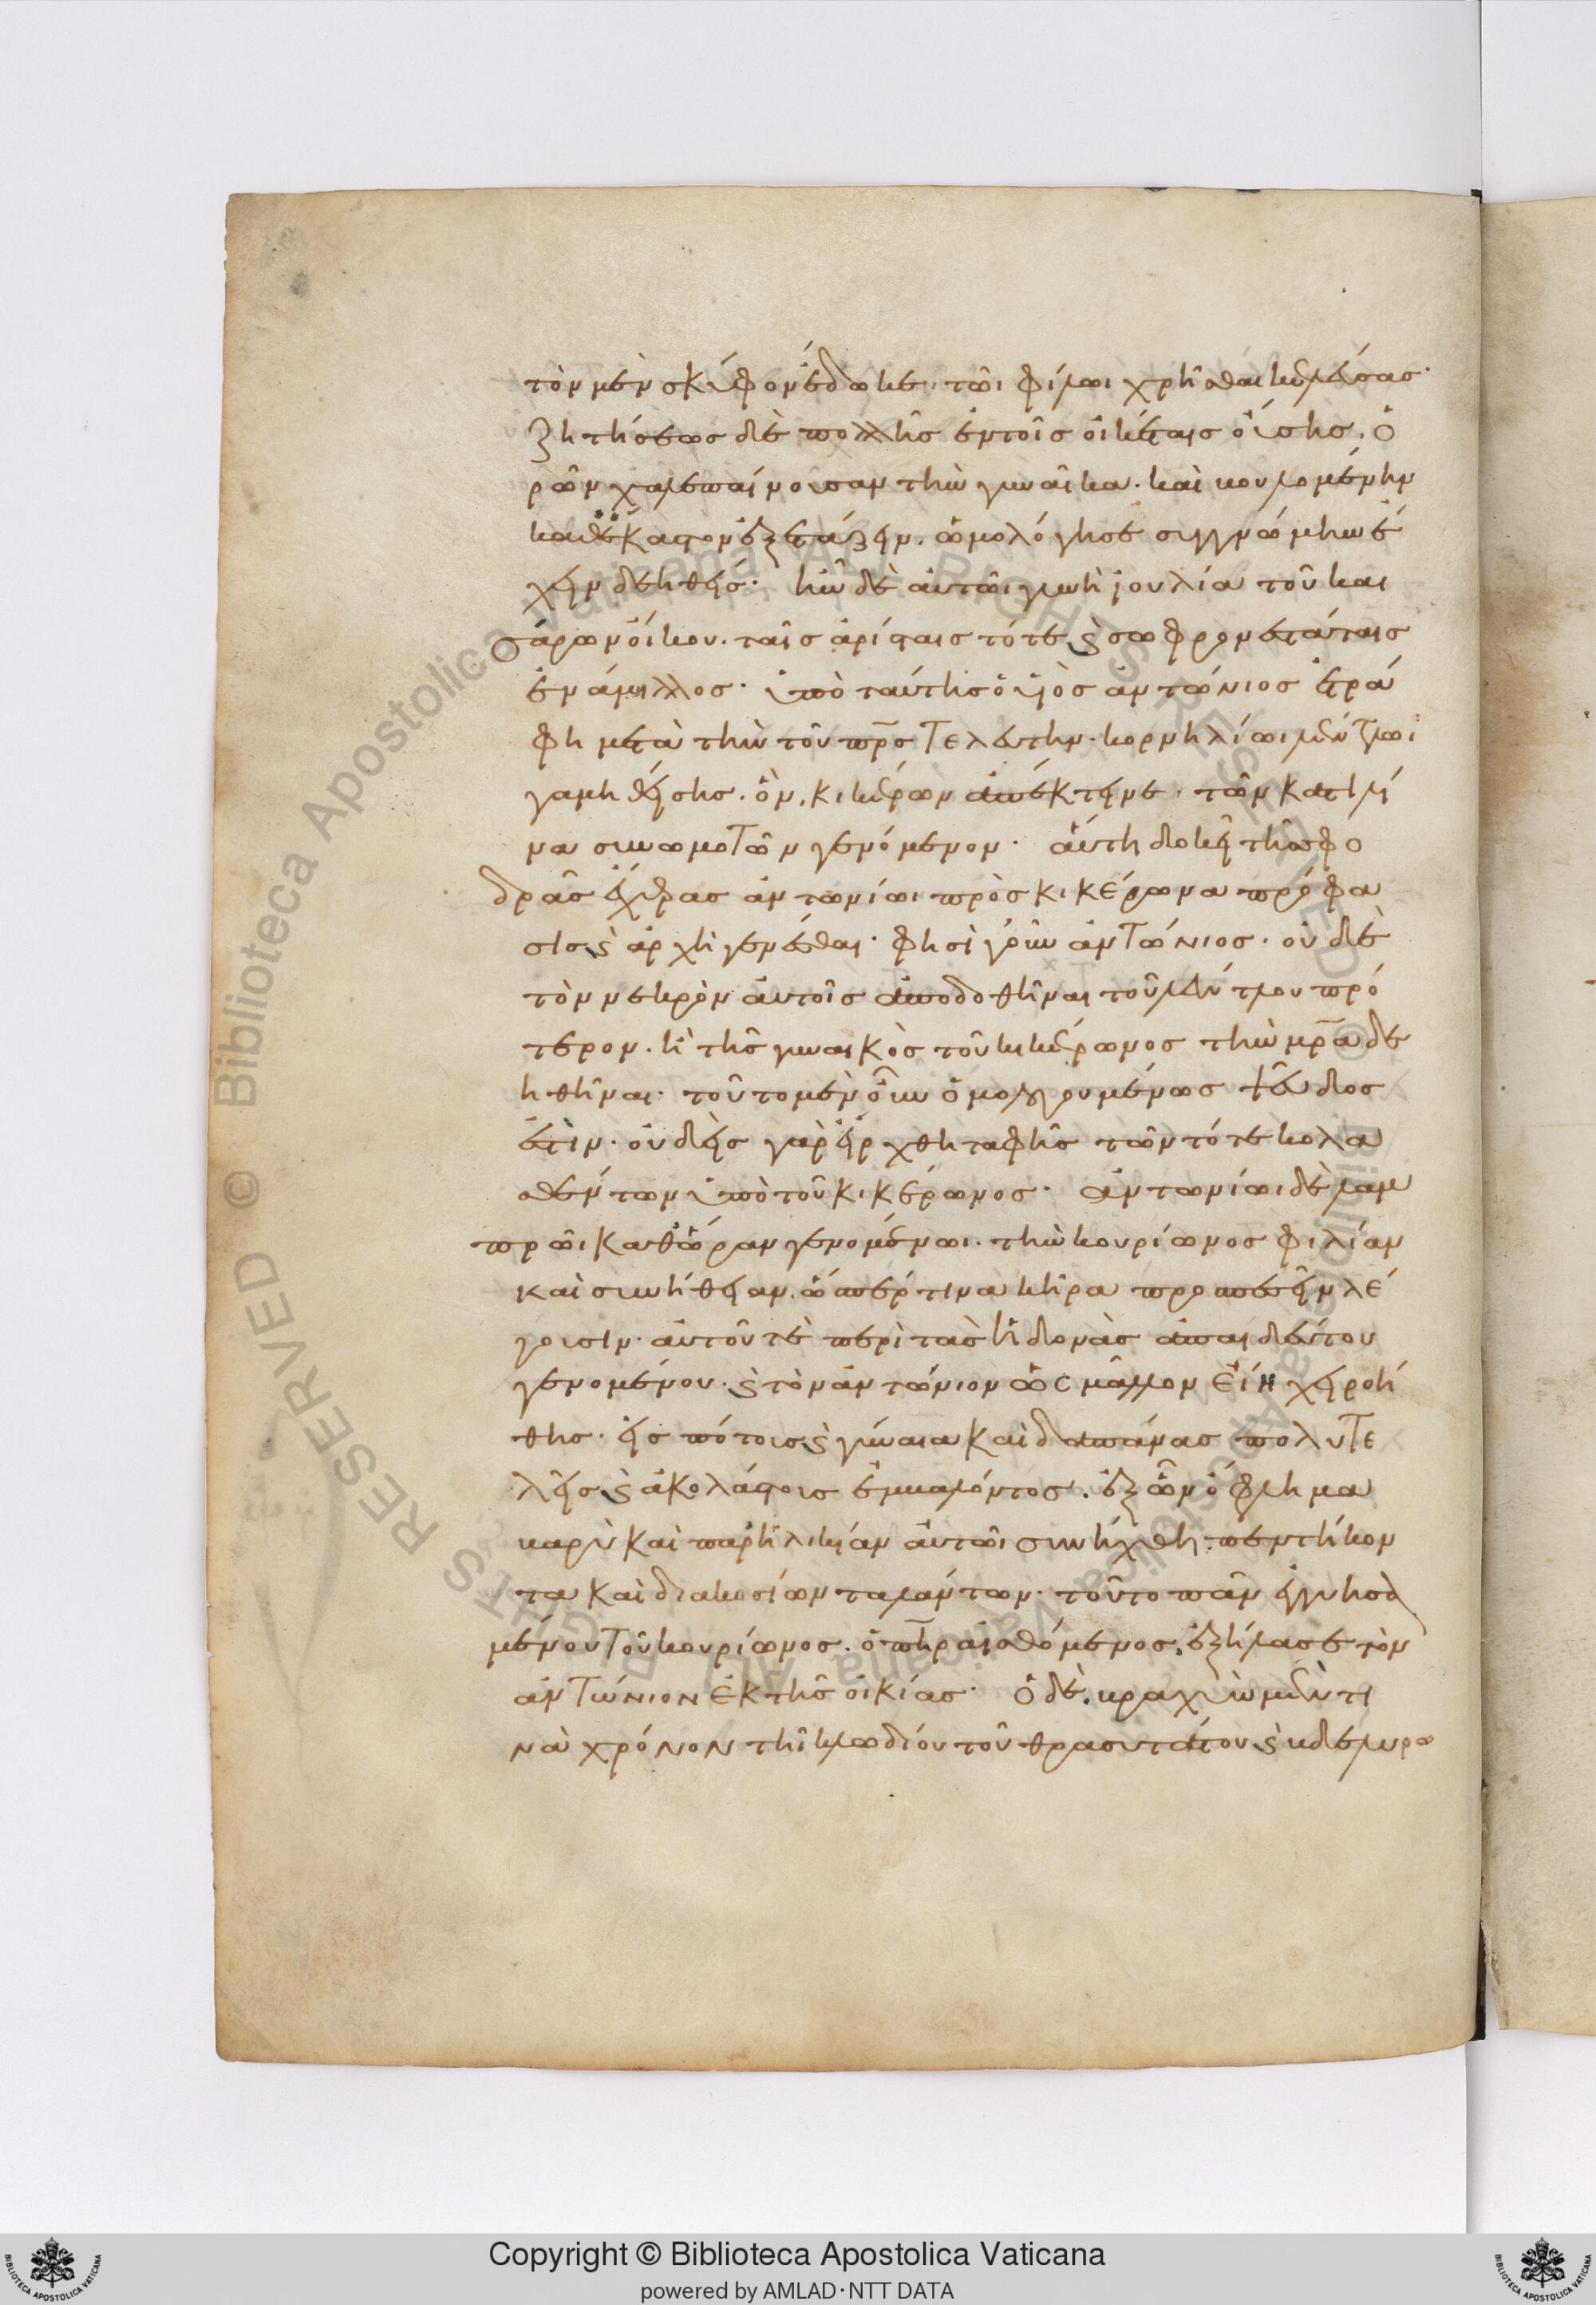 τὸν μὲν σκύφον ἔδωκε. τῶι φίλωι χρῆσθαι κελεύσας·
ζητήσεως δὲ πολλῆς ἐν τοῖς οἰκέταις οὔσης. ὁ
ρῶν χαλεπαίνουσαν τὴν γυναῖκα. καὶ βουλομένην
καθέκαστον ἐξετάζειν. ὡμολόγησε συγγνώμην ἔ
χειν δεηθείς· ἦν δὲ αὐτῶι γυνὴ ἰουλία τοῦ και
σάρων οἴκου. ταῖς ἀρίσταις τότε ϛ̀ σωφρονεστάταις
ἐνάμιλλος· ὑπὸ ταύτης ὁ υἱὸς ἀντώνιος ἐτρά
φη μετὰ τὴν τοῦ πρ̅ς τελευτὴν. κορνηλίωι λέντλωι
γαμηθείσης. ὃν. κικέρων ἀπέκτεινε. τῶν κατιλί
να συνωμοτῶν γενόμενον· αὕτη δοκεῖ τῆς σφο
δρᾶς ἔχθρας ἀντωνίωι πρὸς κικέρωνα πρόφα
σις ϛ̀ ἀρχὴ γενέσθαι· φησὶ γοῦν ἀντώνιος. οὐδὲ
τὸν νεκρὸν αὐτοῖς ἀποδοθῆναι τοῦ λέντλου πρό
τερον. ἢ τῆς γυναικὸς τοῦ κικέρωνος τὴν μρ̅α δε
ηθῆναι· τοῦτο μὲν οὖν ὁμολογουμένως ψεῦδος
ἐστιν· οὐδεὶς γὰρ εἴρχθη ταφῆς τῶν τότε κολα
σθέντων ὑπὸ τοῦ κικέρωνος· ἀντωνίωι δὲ λαμ
πρῶι καθ' ὥραν γενομένωι. τὴν κουρίωνος φιλίαν
καὶ συνήθειαν. ὥσπερ τινα κῆρα προσπεσεῖν λέ
γουσιν. αὐτοῦ τὲ περὶ τὰς ἡδονὰς ἀπαιδεύτου
γενομένου. ϛ̀ τὸν ἀντώνιον ὡς μᾶλλον εἴη χειροή
θης. εἰς πότους ϛ̀ γύναια καὶ δαπάνας πολυτε
λεῖς ϛ̀ ἀκολάστους ἐμβαλόντος. ἐξ ὧν ὄφλημα
βαρὺ καὶ παρ' ἡλικίαν αὐτῶι συνήχθη. πεντήκον
τα καὶ διακοσίων ταλάντων. τοῦτο πᾶν ἐγγυησα
μένου τοῦ κουρίωνος. ὁ πη̅ρ αἰσθόμενος. ἐξήλασε τὸν
ἀντώνιον ἐκ τῆς οἰκίας· ὁ δὲ. βραχὺν μὲν τι
νὰ χρόνον τῆι κλωδίου τοῦ θρασυτάτου ϛ̀ βδελυρω
Copyright © Biblioteca Apostolica Vaticana
powered by AMLAD·NTT DATA